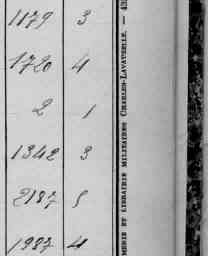 1179 3
1720 4
2 1
1342 3
2137 5
1937 4
MERIE ET LIBRAIRIE MILITAIRES CHARLES-LAVAUZELLE. — 43